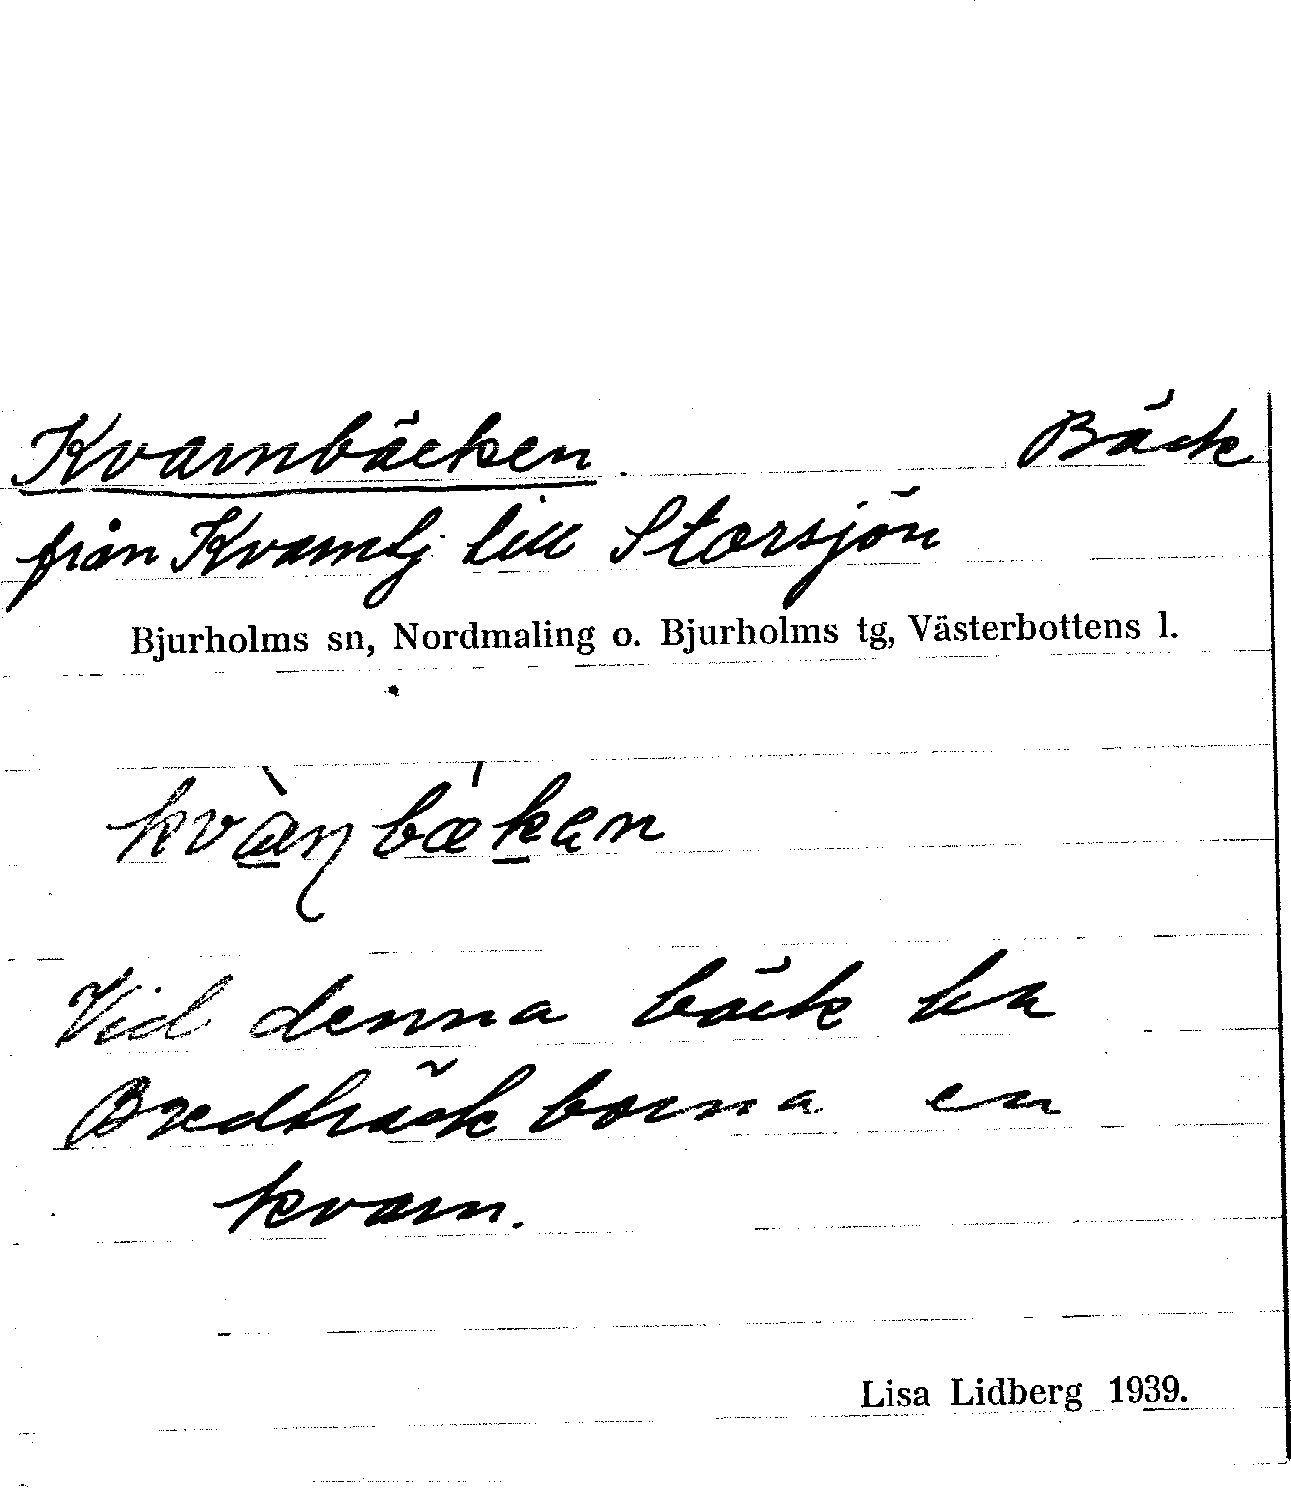 Kvarnbäcken. Bäck
från Kvarntj. till Storsjön
Bjurholms sn, Nordmaling o. Bjurholms tg, Västerbottens l.
Vid denna bäck ha
Bredträskborna en
kvarn.
Lisa Lidberg 1939.